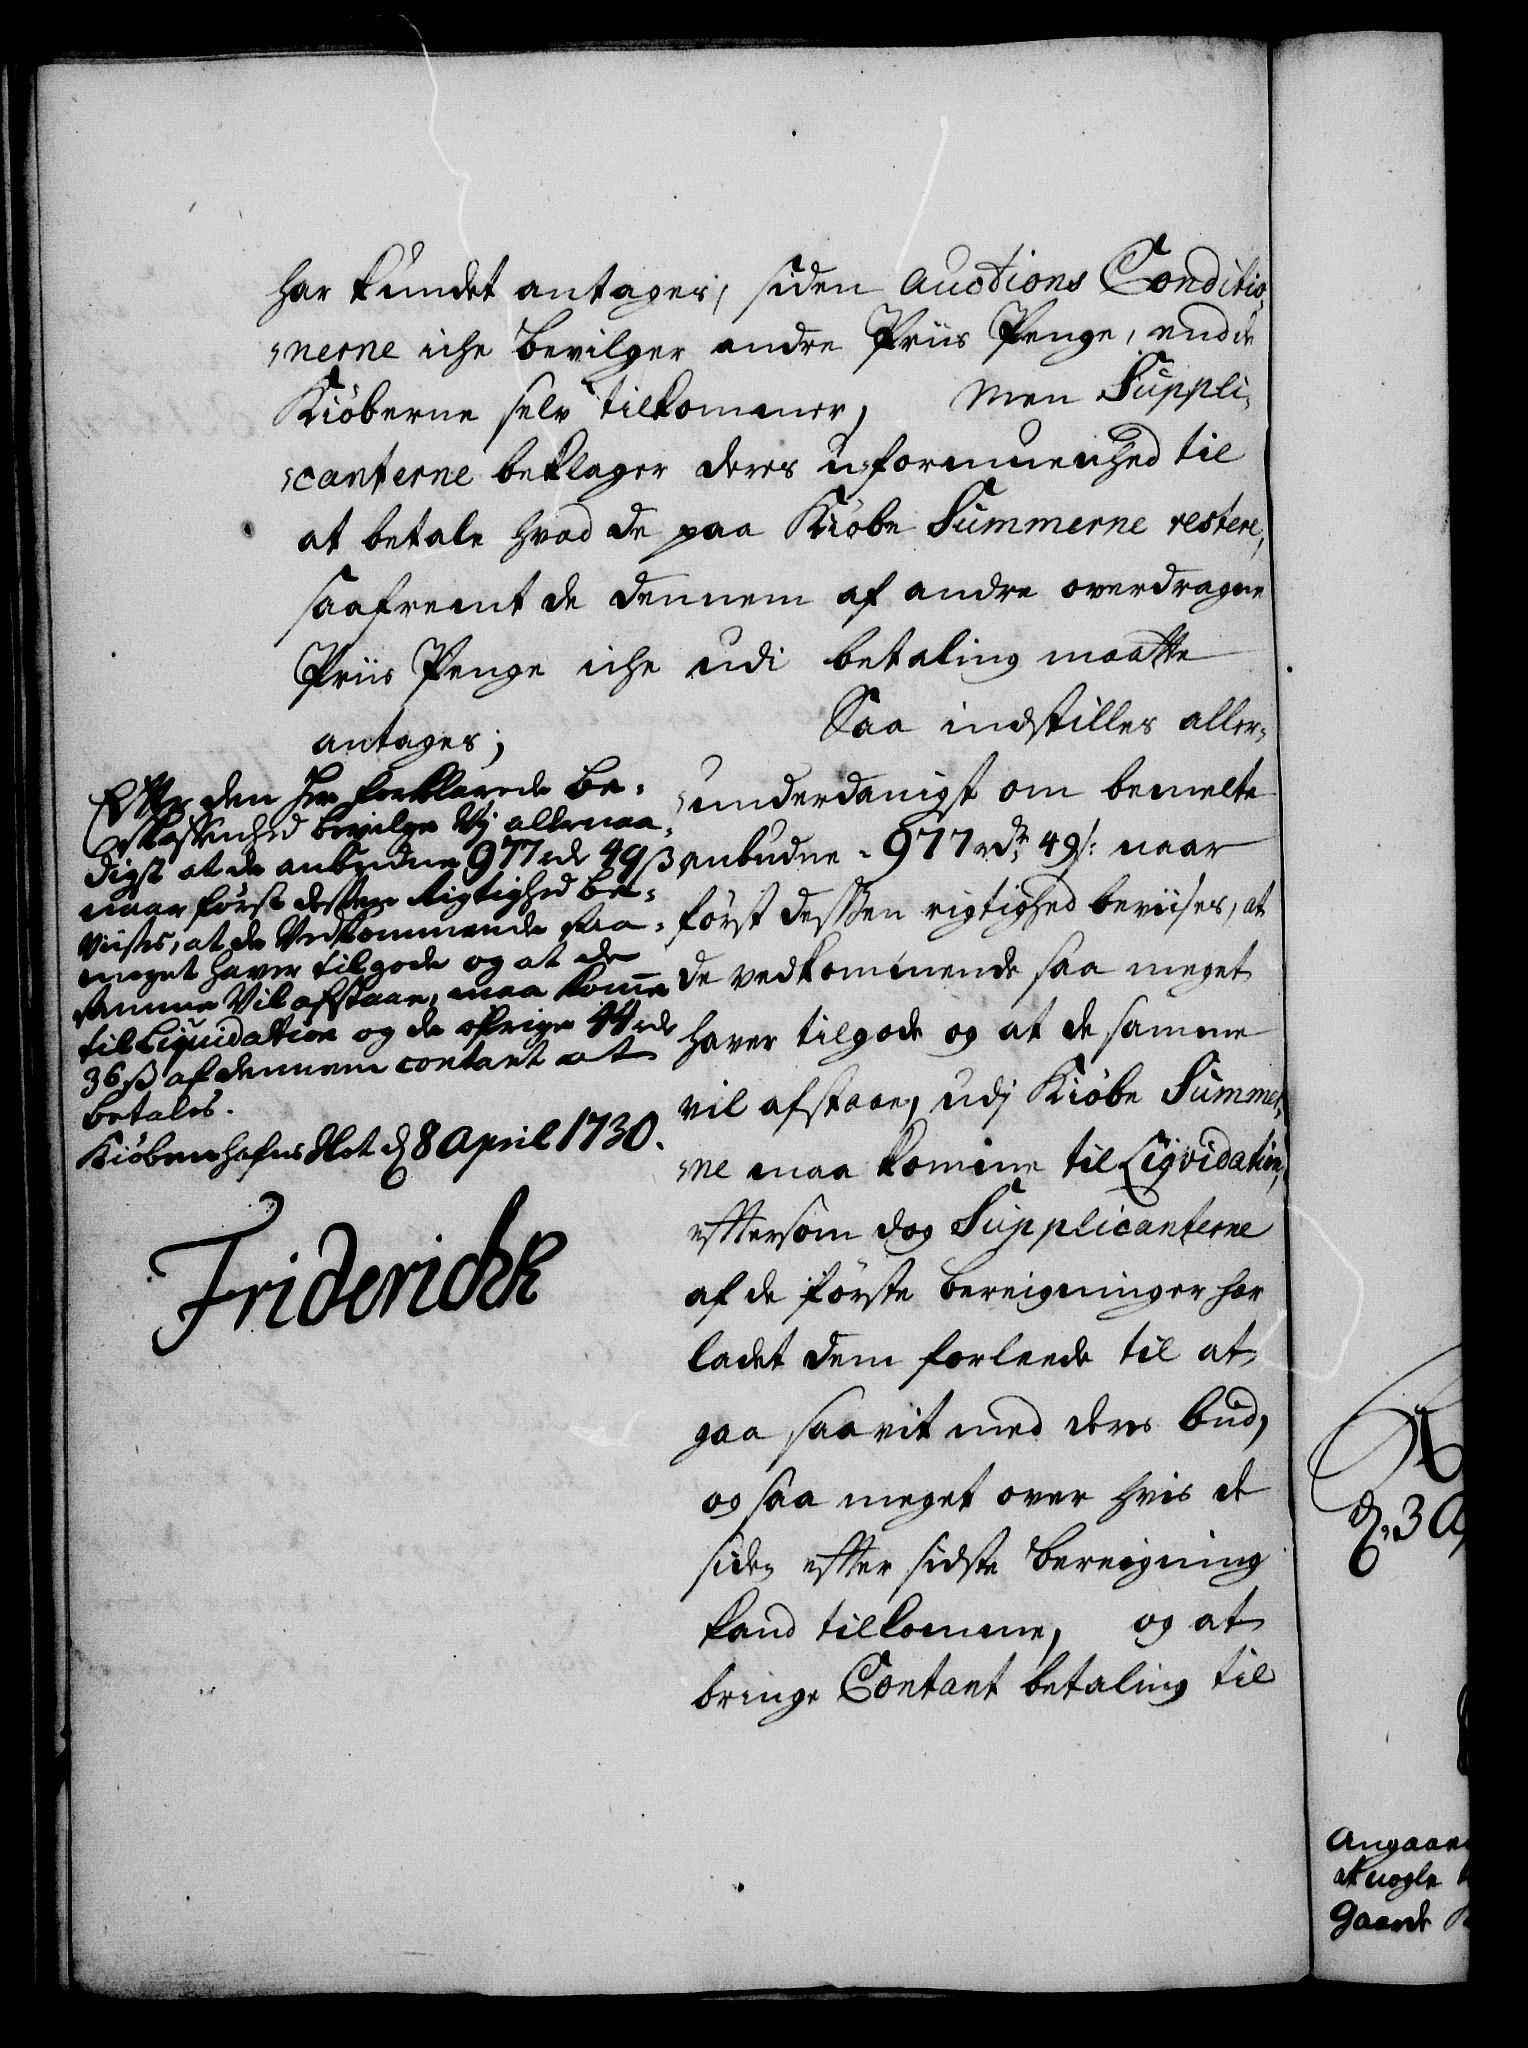 har kundet antages, siden Auctions Conditio-
nerne iche bevilger andre Priis Penge, end de
Kiöberne selv tilkommer, Men Suppli-
canterne beklager deres uformuenhed til
at betale hvad de paa Kiöbe Summerne restere,
saafremt de dennem af andre overdragne
Priis Penge iche udi betaling maatte
antages; Saa indstilles aller-
underdanigst om bemelte
anbudne 977 rdr 49 s: naar
först dessen rigtighed beviises, at
de vedkommende saa meget
haver tilgode og at de samme
vil afstaae, udj Kiöbe Summer-
ne maa komme til Liqvidation,
eftersom dog Supplicanterne
af de förste bereigninger har
ladet dem forleede til at
gaa saavit med deres bud,
og saa meget over hvis de
siden efter sidste bereigning
kand tilkomme, og at
bringe Contant betaling til
Efter den her forklarede be-
skaffenhed bevilge Vj allernaa-
digst at de anbudne 977 rdr 49 ß
naar först dessen rigtighed be-
viises, at de Vedkommende saa-
meget haver tilgode og at de
samme Vil afstaae, maa komme
til Liquidation og de öfrige 44 rdr
36 ß af dennem contant at
betales.
Kiöbenhafns Slot d 8 April 1730.
Friderich R
d. 3 Ap
Angaaen
at nogle
gaaende